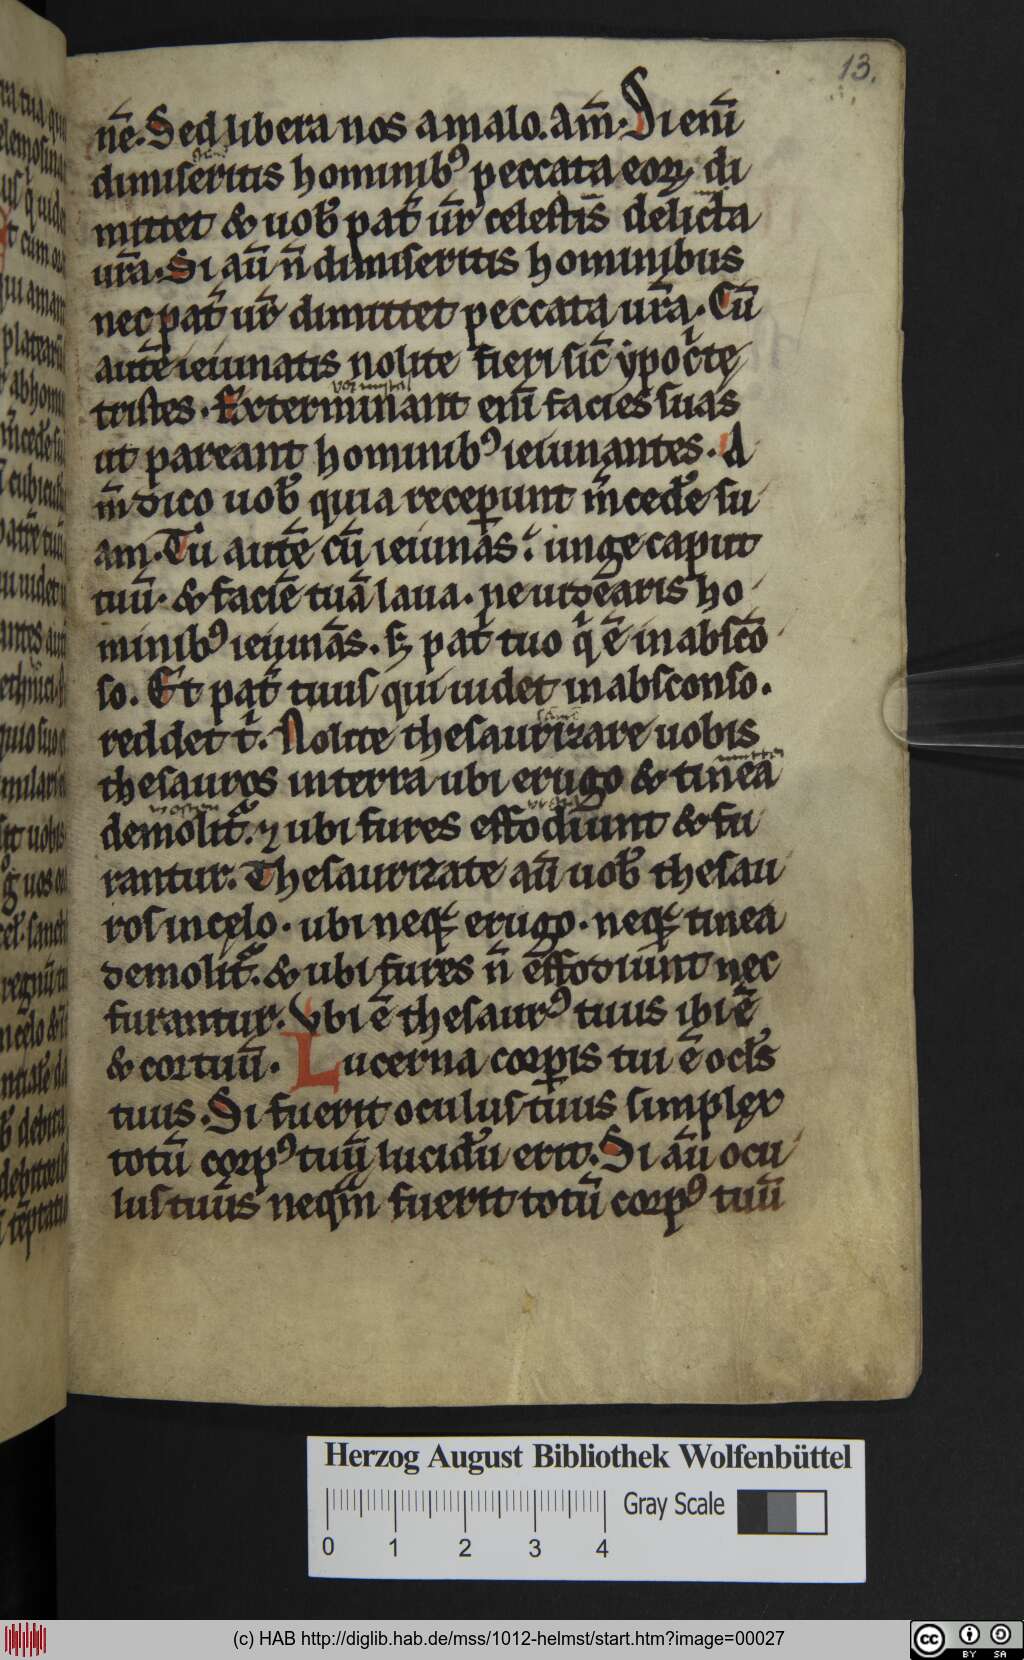 13.
nē. Sed libera nos a malo. am̄. Si eni͞
dimiseritis hominibꝰ peccata eoꝝ di
mittet & uob̄ pat̄ ur̄ celestis delicta
ur̄a. Si au̅ n̄ dimiseritis hominibus
nec pat̄ ur̄ dimittet peccata ur̄a. Cu̅
aute̅ ieiunatis nolite fieri sic̄ ypoc̄te
tristes. Exterminant eni̅ facies suas
ut pareant hominibꝰ ieiunantes. A
m̄ dico uob̄ quia receper̅unt m̄cede̅ su
am. Tu aute̅ cu̅ ieiunas. unge caput
tuu̅. & facie̅ tua̅ laua. ne uidearis ho
minibꝰ ieiunas. sꝫ pat̄ tuo q̄ e̅ in absco̅
so. Et pat̄ tuus qui uidet in absconso.
reddet t̄. Nolite thesaurizare uobis
thesauros in terra ubi erugo & tinea
demolit̄. ⁊ ubi fures effodiunt & fu
rantur. Thesaurizate au̅ uob̄ thesau
ros in celo. ubi neqꝫ erugo. neqꝫ tinea
demolit̄. & ubi fures n̄ effodiunt nec
furantur. Vbi e̅ thesaurꝰ tuus ibi e̅
& cor tuu̅. Lucerna corꝑis tui e̅ ocl̄s
tuus. Si fuerit oculus tuus simplex
totu̅ corpꝰ tuu̅ lucidu̅ erit. Si au̅ ocu
lus tuus neqm̄ fuerit totu̅ corpꝰ tuu̅
Herzog August Bibliothek Wolfenbüttel
Gray Scale
0 1 2 3 4
(c) HAB http://diglib.hab.de/mss/1012-helmst/start.htm?image=00027
cc BY SA